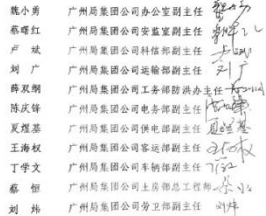 魏小勇 广州局集团公司办公室副主任
蔡曙红 广州局集团公司安监室副主任
卢斌 广州局集团公司科信部副主任
刘广 广州局集团公司运输部副主任 刘广
薛双纲 广州局集团公司工务部防洪办主任
陈庆锋 广州局集团公司电务部副主任
夏煜基 广州局集团公司供电部副主任
王海权 广州局集团公司客运部副主任
丁学文 广州局集团公司车辆部副主任
蔡恒 广州局集团公司土房部总工程师
刘炜 广州局集团公司劳卫部副主任 刘炜